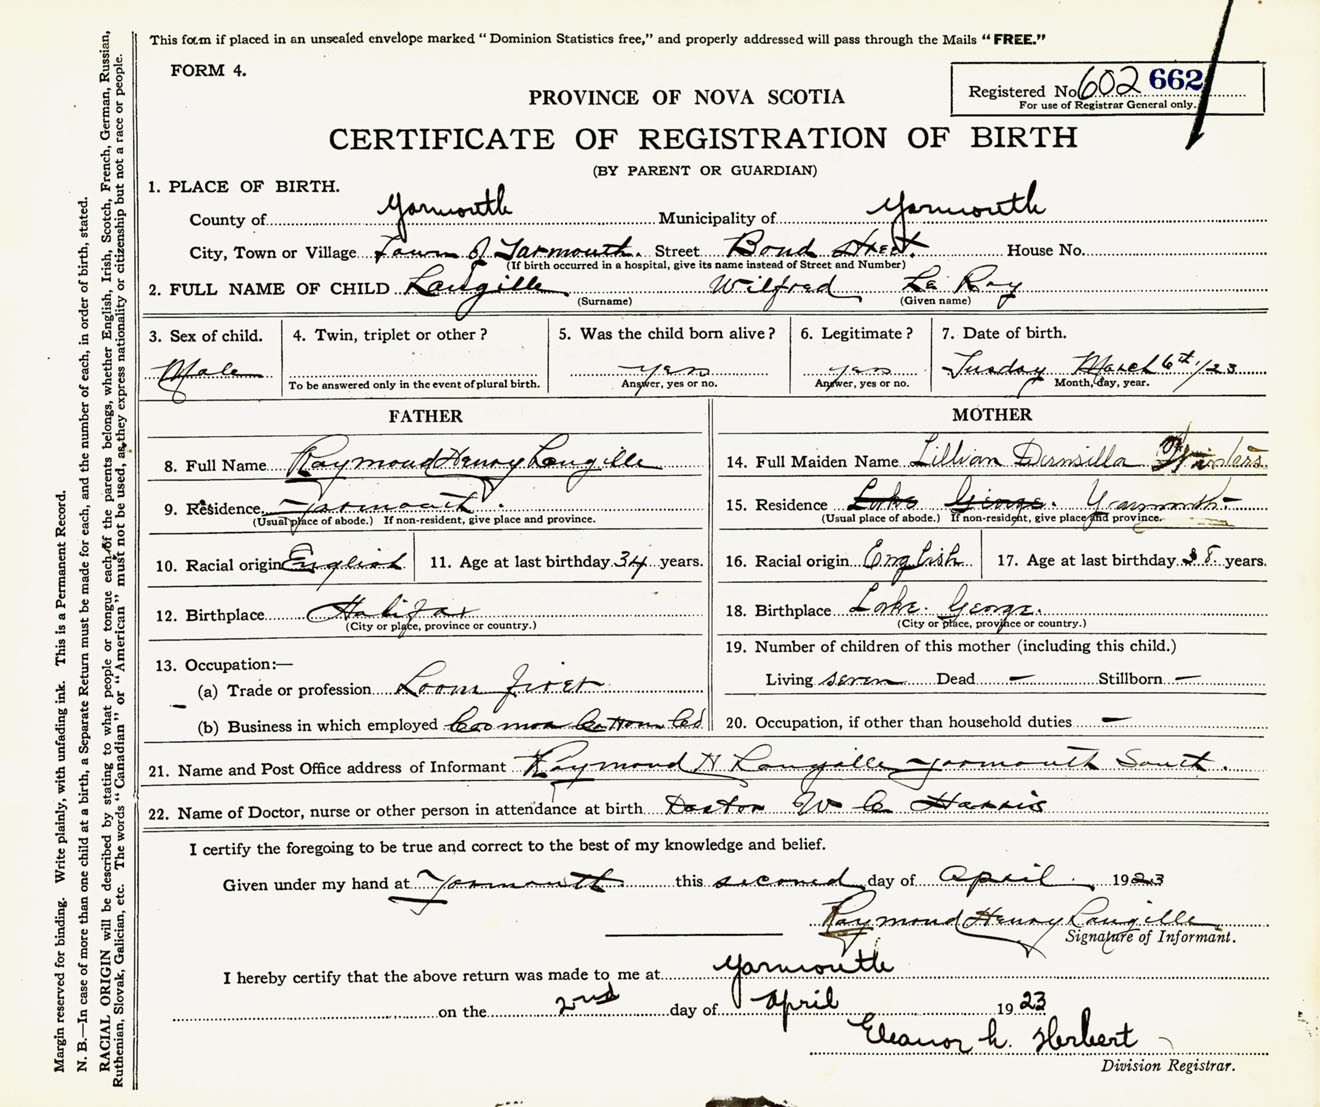 This form if placed in an unsealed envelope marked "Dominion Statistics free," and properly addressed will pass through the Mails "FREE."
FORM 4.
Registered No. 602 662
For use of Registrar General only.
PROVINCE OF NOVA SCOTIA
CERTIFICATE OF REGISTRATION OF BIRTH
(BY PARENT OR GUARDIAN)
1. PLACE OF BIRTH.
County of Yarmouth Municipality of Yarmouth
City, Town or Village Town of Yarmouth. Street Bond Street. House No.
(If birth occurred in a hospital, give its name instead of Street and Number)
2. FULL NAME OF CHILD Langille Wilfred Le Roy
(Surname) (Given name)
3. Sex of child. 4. Twin, triplet or other? 5. Was the child born alive? 6. Legitimate? 7. Date of birth.
Male yes yes Tusday March 6th 1/23
To be answered only in the event of plural birth. Answer, yes or no. Answer, yes or no. Month, day, year.
FATHER
8. Full Name Raymond Henry Langille
9. Residence. Yarmouth.
(Usual place of abode.) If non-resident, give place and province.
10. Racial origin English 11. Age at last birthday 34 years.
12. Birthplace Halifax
(City or place, province or country.)
13. Occupation:—
(a) Trade or profession Loom fixer
(b) Business in which employed Cosmos Cotton Co
MOTHER
14. Full Maiden Name Lillian
15. Residence Lake George. Yarmouth
(Usual place of abode.) If non-resident, give place and province.
16. Racial origin English 17. Age at last birthday 38 years.
18. Birthplace Lake George.
(City or place, province or country.)
19. Number of children of this mother (including this child.)
Living seven Dead — Stillborn —
20. Occupation, if other than household duties —
21. Name and Post Office address of Informant Raymond H Langille Yarmouth South.
22. Name of Doctor, nurse or other person in attendance at birth Doctor W C Harris
I certify the foregoing to be true and correct to the best of my knowledge and belief.
Given under my hand at Yarmouth this second day of April 1923
Raymond Henry Langille
Signature of Informant.
I hereby certify that the above return was made to me at Yarmouth
on the 2nd day of April 1923
Eleanor h. Herbert
Division Registrar.
Margin reserved for binding. Write plainly, with unfading ink. This is a Permanent Record.
N. B.—In case of more than one child at a birth, a Separate Return must be made for each, and the number of each, in order of birth, stated.
RACIAL ORIGIN will be described by stating to what people or tongue each of the parents belongs, whether English, Irish, Scotch, French, German, Russian,
Ruthenian, Slovak, Galician, etc. The words "Canadian" or "American" must not be used, as they express nationality or citizenship but not a race or people.